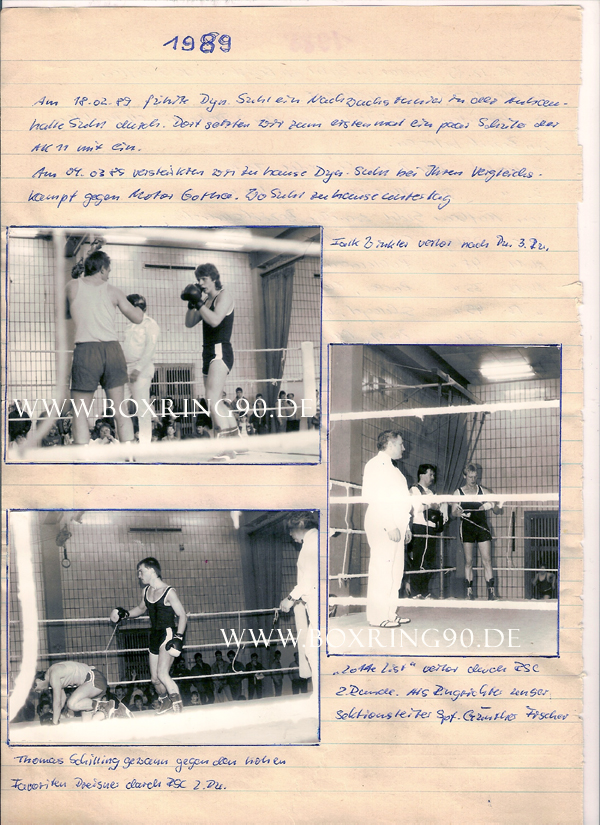 1989
Am 18.02.89 führte Dyn. Suhl ein Nachwuchsturnier in der Aubran-
halle Suhl durch. Dort setzten wir zum erstenmal ein paar Schüler der
AK 11 mit ein.
Am 04.03.89 verstärkten wir zu hause Dyn. Suhl bei Ihren Vergleichs-
kampf gegen Motor Gotha. Wo Suhl zu hause unterlag
Falk Winkler verlor nach Pu. 3. Ru.
WWW.BOXRING90.DE
WWW.BOXRING90.DE
"Lotte List" verlor durch RSC
2. Runde. Als Ringrichter unser
Sektionsleiter Spf. Günther Fischer
Thomas Schilling gewann gegen den hohen
Favoriten durch RSC 2. Ru.